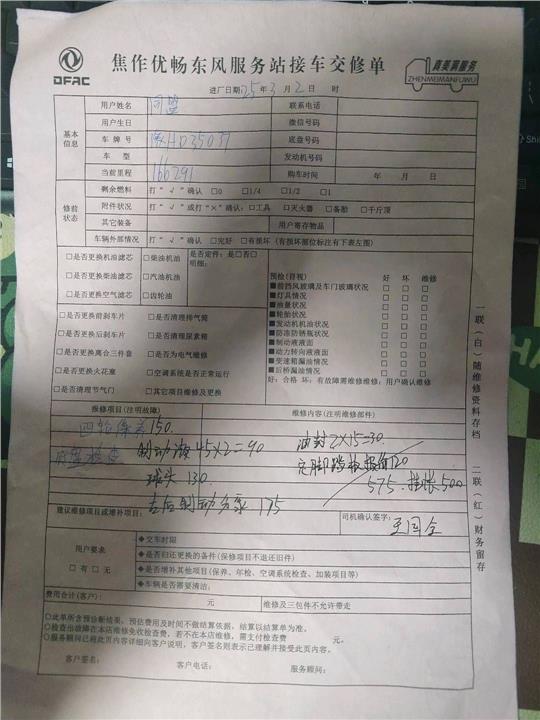 DFAC
焦作优畅东风服务站接车交修单
真美满服务
ZHENMEIMANFUWU
进厂日期 25年 3月 2日 时
基本信息
用户姓名 联系电话
用户生日 微信号码
车牌号 HD35037 底盘号码
车型 发动机号码
当前里程 166291 购车时间 年 月 日
修前状态
剩余燃料 打“√”确认 □0 □1/4 □1/2 □1
附件状况 打“√”或打“×”确认:□工具 □灭火器 □备胎 □千斤顶
其它装备 用户寄存物品
车辆外部情况 打“√”确认 □完好 □有损坏(有损坏部位标注有下表左图)
□是否更换机油滤芯 □柴油机油 是否定件:是□否□
明细:
□是否更换柴油滤芯 □汽油机油
□是否更换空气滤芯 □齿轮油
预检(目视) 好 坏 维修
■前挡风玻璃及车门玻璃状况 □ □ □
■灯具情况 □ □ □
■油量状况 □ □ □
■轮胎状况 □ □ □
■发动机机油状况 □ □ □
■防冻防锈瓶状况 □ □ □
■制动液液面 □ □ □
■动力转向液液面 □ □ □
■变速箱漏油情况 □ □ □
■后桥漏油情况 □ □ □
好:合格 坏:有故障需维修维修:用户确认维修
□是否更换前刹车片 □是否清理排气筒
□是否更换后刹车片 □是否清理尿素箱
□是否更换离合三件套 □是否为电气维修
□是否更换火花塞 □空调系统是否正常运行
□是否清理节气门 □其它项目维修及更换
维修项目(注明故障) 维修内容(注明维修部件)
四轮保养150
底盘检查 制动液45×2=90 油封2×15=30
球头130
575.挂账500
去后制动分泵175
建议维修项目或增补项目: 司机确认签字:
王国全
用户要求
□有 □无
◆交车时间
◆是否归还更换的备件(保修项目不退还旧件)
◆是否增补其他项目(保养、年检、空调系统检查、加装项目等)
◆车辆是否需要清洁:
费用合计(客户): 元 维修及三包件不允许带走
○此单所含预诊断结果、预估费用及时间不做结算依据,结算以结算单为准。
○检查出故障在本店维修免收检查费,若不在本店维修,需支付检查费 元。
○服务顾问已将此页内容详细向客户说明,客户签名则表示已理解并接受此页内容。
客户签名: 客户电话: 服务顾问:
一联(白)随维修资料存档
二联(红)财务留存